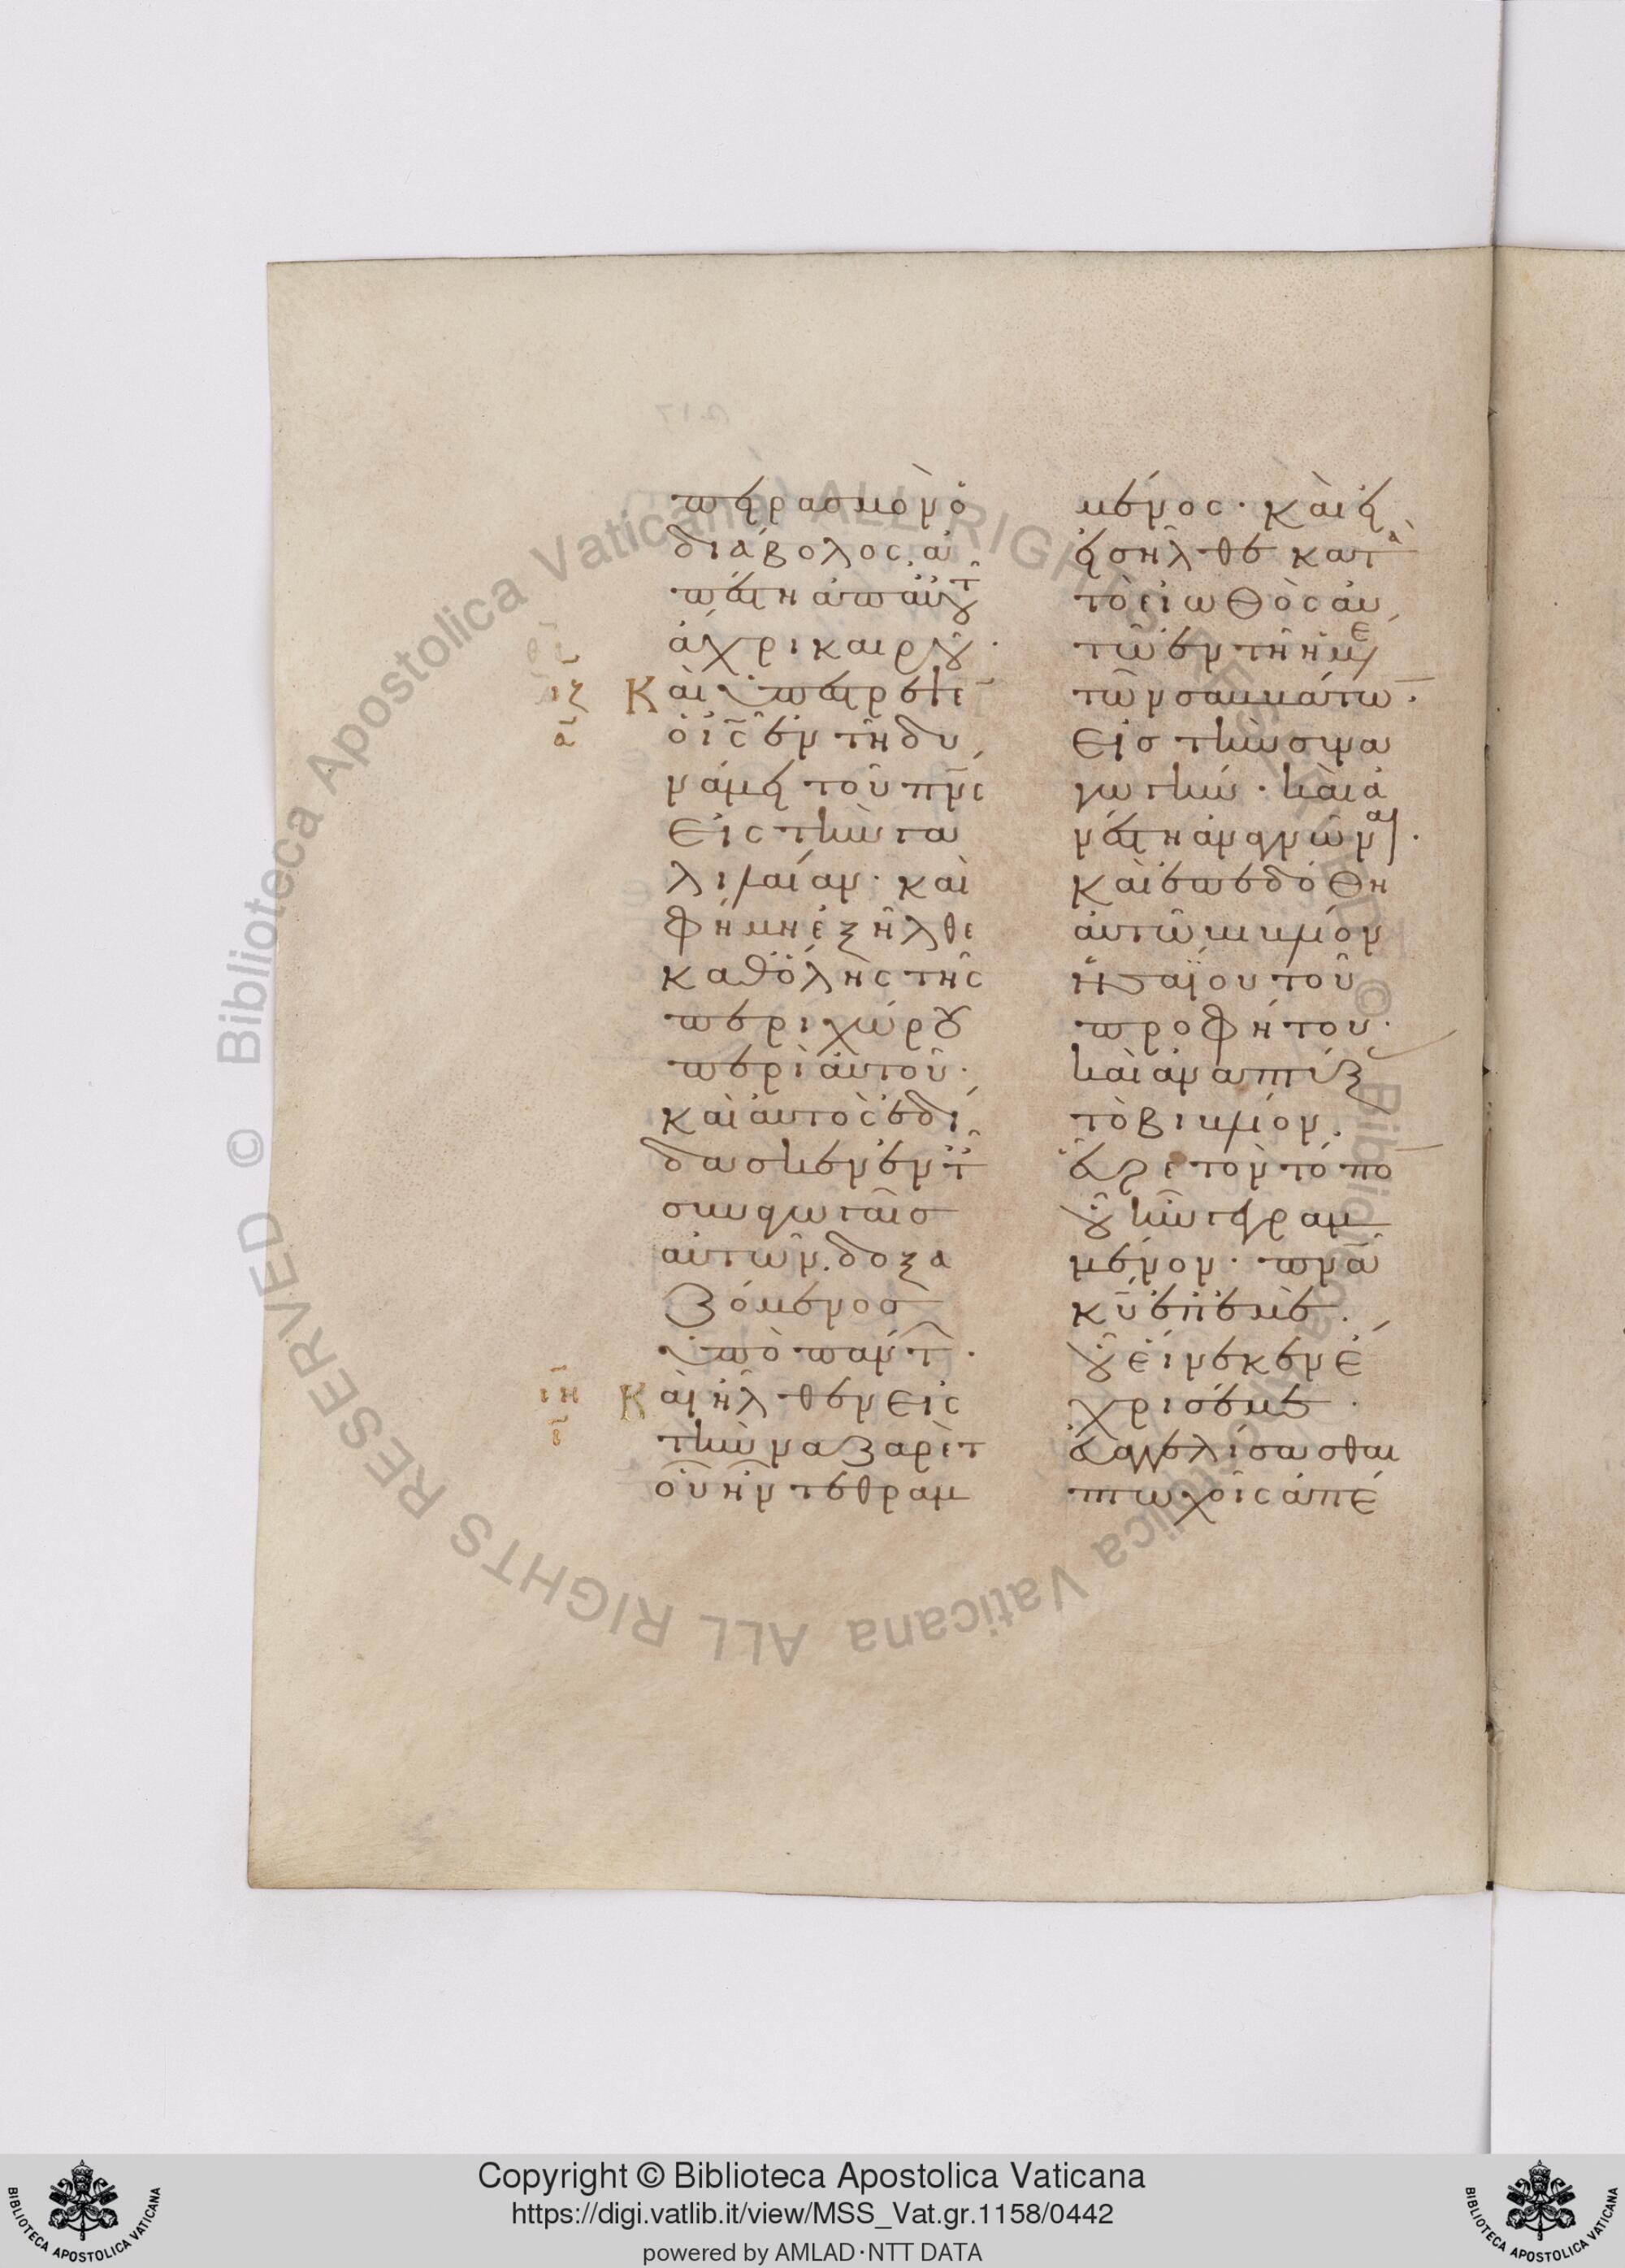 πειρασμὸν ὁ
διάβολος, ἀ
πέστη ἀπ αὐτ(οῦ)
ἄχρι καιροῦ·
ιζ Καὶ ὑπέστρεψε
α ὁ ι̅ς̅ ἐν τῆ δυ
νάμει τοῦ π̅ν̅ς̅
εἰς τὴν γα
λιλαίαν· καὶ
φήμη ἐξῆλθε
καθόλης τῆς
περιχώρου
περὶ αὐτοῦ·
καὶ αὐτὸς ἐδί
δασκεν ἐν τ
συναγωγαῖς
αὐτῶν. δοξα
ζόμενος
ὑπὸ πάντ·
ιη Καὶ ἦλθεν εἰς
ι τὴν ναζαρὲτ
οὗ ἦν τεθραμ
μένος· καὶ εἰ
εισῆλθε κατὰ
τὸ εἰωθὸς αὐ
τῶ ἐν τῆ ἡμέ
τῶν σαββάτω·
εἰς τὴν συνα
γωγήν· καὶ ἀ
νέστη ἀναγνῶναι·
καὶ ἐπεδόθη
αὐτῶ βιβλίον
ἡσαΐου τοῦ
προφήτου·
καὶ ἀναπτύξ
τὸ βιβλίον,
εὗρε τὸν τόπο
οὗ ἦν γεγραμ
μένον· π̅ν̅α̅
κ̅υ̅ ἐπ ἐμὲ.
οὗ εἵνεκεν ἔ
χρισέ με·
εὐαγγελίσασθαι
πτωχοῖς ἀπέ
Biblioteca Apostolica Vaticana ALL RIGHTS RESERVED ©
Copyright © Biblioteca Apostolica Vaticana
https://digi.vatlib.it/view/MSS_Vat.gr.1158/0442
powered by AMLAD·NTT DATA
BIBLIOTECA APOSTOLICA VATICANA
BIBLIOTECA APOSTOLICA VATICANA